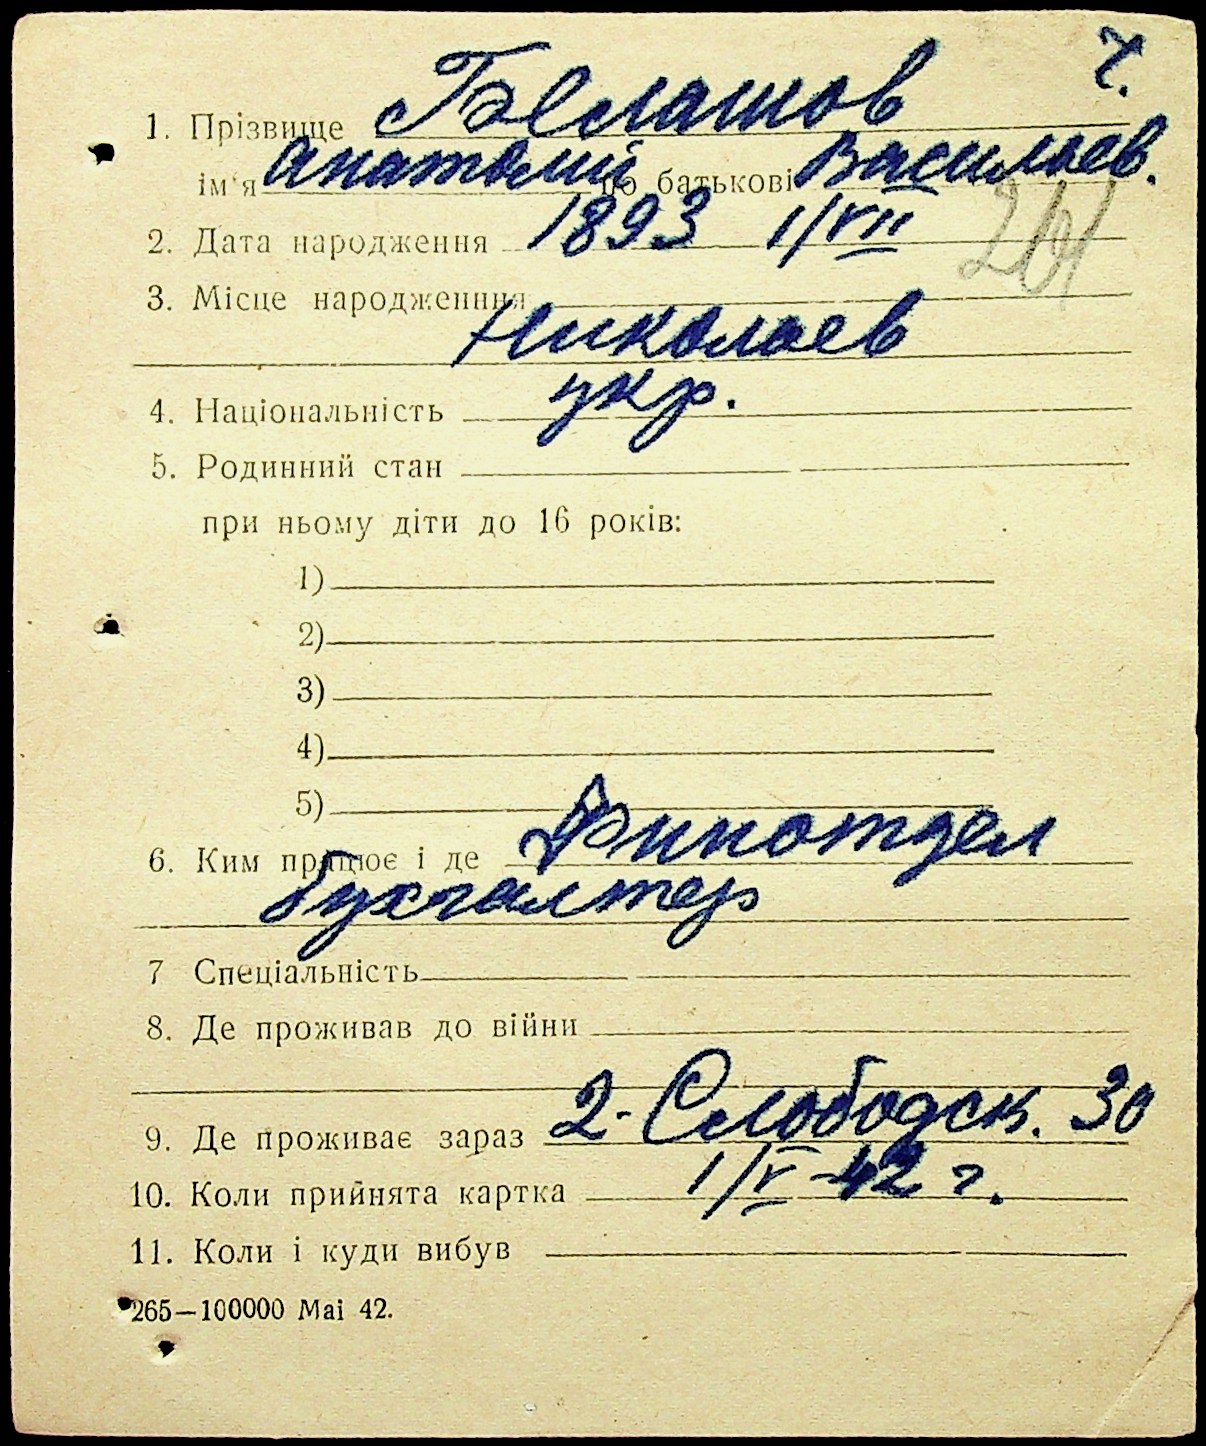 ч.
1. Прізвище Беслашов
ім'я Анатолий по батькові Василиев.
2. Дата народження 1893 1/VII
201
3. Місце народженння
Николаев
4. Національність укр.
5. Родинний стан
при ньому діти до 16 років:
1)
2)
3)
4)
5)
6. Ким працює і де Финотдел
бухгалтер
7 Спеціальність
8. Де проживав до війни
9. Де проживає зараз 2-Слободск. 30
10. Коли прийнята картка 1/V-42 г.
11. Коли і куди вибув
265—100000 Mai 42.